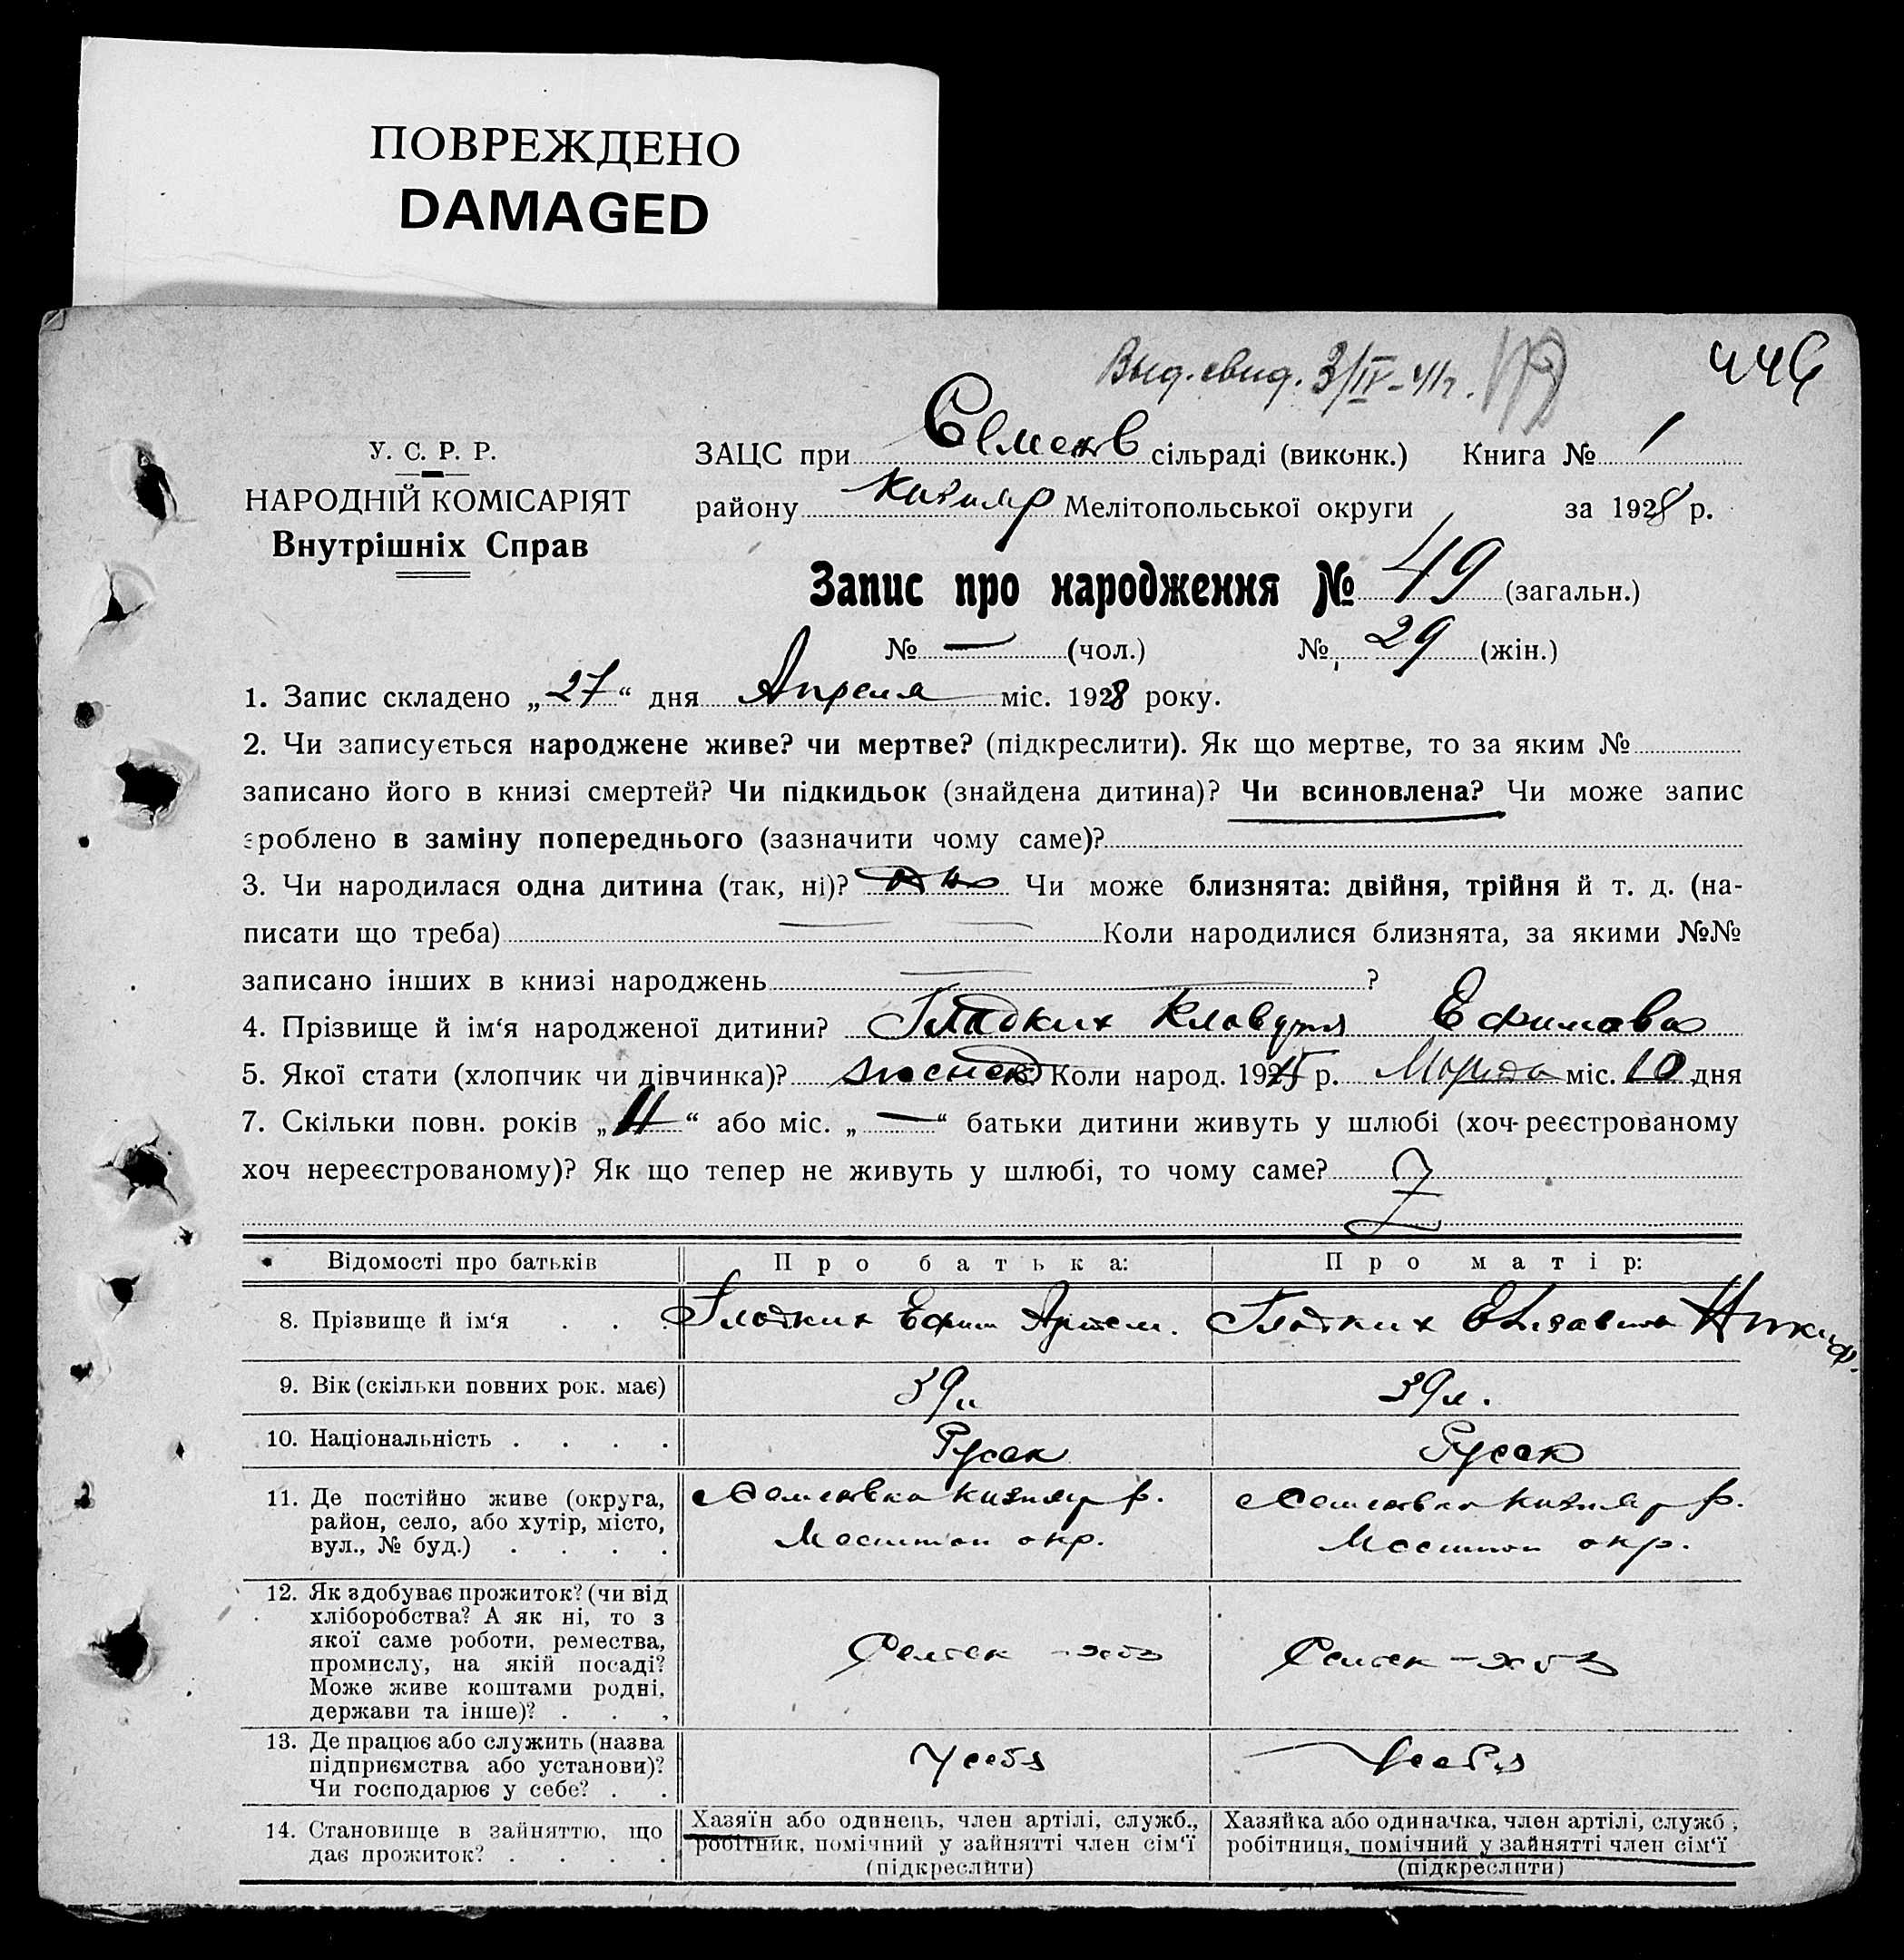 ПОВРЕЖДЕНО
DAMAGED
Выд. свид. 3/IV-41г.
446
У. С. Р. Р.
НАРОДНІЙ КОМІСАРІЯТ
Внутрішніх Справ
ЗАЦС при Семенов сільраді (виконк.) Книга № 1
району Кизияр Мелітопольської округи за 1928 р.
Запис про народження № 49 (загальн.)
№ — (чол.) № 29 (жін.)
1. Запис складено „27“ дня Апреля міс. 1928 року.
2. Чи записується народжене живе? чи мертве? (підкреслити). Як що мертве, то за яким №
записано його в книзі смертей? Чи підкидьок (знайдена дитина)? Чи всиновлена? Чи може запис
зроблено в заміну попереднього (зазначити чому саме)?
3. Чи народилася одна дитина (так, ні)? Чи може близнята: двійня, трійня й т. д. (на-
писати що треба) Коли народилися близнята, за якими №№
записано інших в книзі народжень ?
4. Прізвище й ім‘я народженої дитини? Гладких Клавдия Ефимовна
5. Якої стати (хлопчик чи дівчинка)? Коли народ. 19 р. Марта міс. 10 дня
7. Скільки повн. років „ “ або міс. „—“ батьки дитини живуть у шлюбі (хоч-реєстрованому
хоч нереєстрованому)? Як що тепер не живуть у шлюбі, то чому саме?
Відомості про батьків Про батька: Про матір:
8. Прізвище й ім‘я Гладких Ефим Артем. Гладких Елизавета Никиф.
9. Вік (скільки повних рок. має) 39 л 39 л.
10. Національність Русск Русск
11. Де постійно живе (округа,
район, село, або хутір, місто,
вул., № буд.)
Семеновка Кизияр р.
Мелитоп окр.
Семеновка Кизияр р.
Мелитоп окр.
12. Як здобуває прожиток? (чи від
хліборобства? А як ні, то з
якої саме роботи, ремества,
промислу, на якій посаді?
Може живе коштами родні,
держави та інше)?
Сельск-хоз
Сельск-хоз
13. Де працює або служить (назва
підприємства або установи)?
Чи господарює у себе?
У себя
У себя
14. Становище в зайняттю, що
дає прожиток?
Хазяїн або одинець, член артілі, служб.,
робітник, помічний у зайнятті член сім‘ї
(підкреслити)
Хазяйка або одиначка, член артілі, служб.,
робітниця, помічний у зайнятті член сім‘ї
(підкреслити)